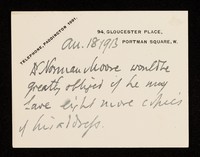 94, GLOUCESTER PLACE,
PORTMAN SQUARE, W.
TELEPHONE, PADDINGTON
18 1913
Dr Norman Moore would be
greatly obliged if he may
have eight more copies
of his address.